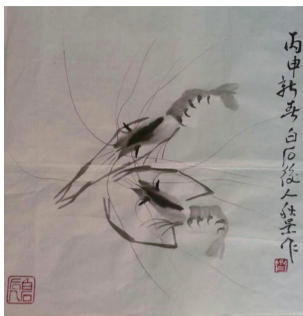 丙申新春白石後人秋景作